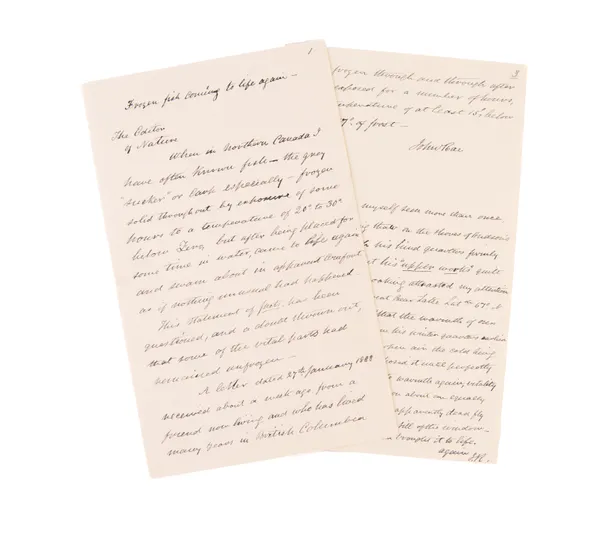 1
Frozen fish coming to life again —
The Editor
of Nature
When in Northern Canada I
have often known fish — the grey
"sucker" or Carp especially — frozen
solid throughout by exposure of some
hours to a temperature of 20° to 30°
below Zero, but after being placed for
some time in water, came to life again
and swam about in apparent comfort
as if nothing unusual had happened
This statement of facts has been
questioned, and a doubt thrown out,
that some of the vital parts had
remained unfrozen —
A letter dated 27th January 1882
received about a week ago from a
friend now living and who has lived
many years in British Columbia
3
frozen through and through after
exposed for a number of hours,
temperature of at least 15° below
7° of frost —
John Rae
myself seen more than once
that on the shores of Hudson's
his hind quarters firmly
his "upper works" quite
looking attracted my attention
Great Bear Lake Lat 67°
that the warmth of
his winter quarters
open air the cold being
it until perfectly
warmth again, vitality
about an equally
apparently dead fly
sill of the window —
brought it to life
again J.R.